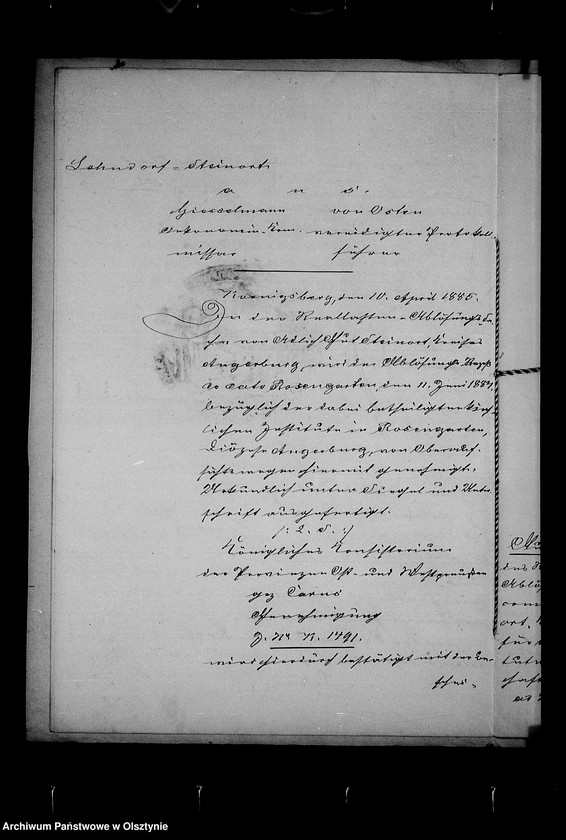 Lehndorf-Steinort
a. u. s.
Giesselmann von Osten
Oekonomie-Kom- vereidigter Protokoll
missar führer
Koenigsberg, den 10. April 1885.
In der Reallasten-Ablösungs-Sa-
che von Adlich Gut Steinort, Kreises
Angerburg, wird der Ablösungs-Rezeß
de dato Rosengarten den 11. Juni 1884,
bezüglich der dabei betheiligten kirch-
lichen Institute in Rosengarten,
Diözese Angerburg, von Oberauf-
sichtswegen hiermit genehmigt.
Urkundlich unter Siegel und Unter-
schrift ausgefertigt.
/: L. S. :/
Königliches Konsistorium
der Provinzen Ost- und Westpreußen
gez Carus
Genehmigung
J. № 1491.
wird hierdurch bestätigt mit der Be-
schei-
des
Ablö
ort,
für
schaft
Archiwum Państwowe w Olsztynie